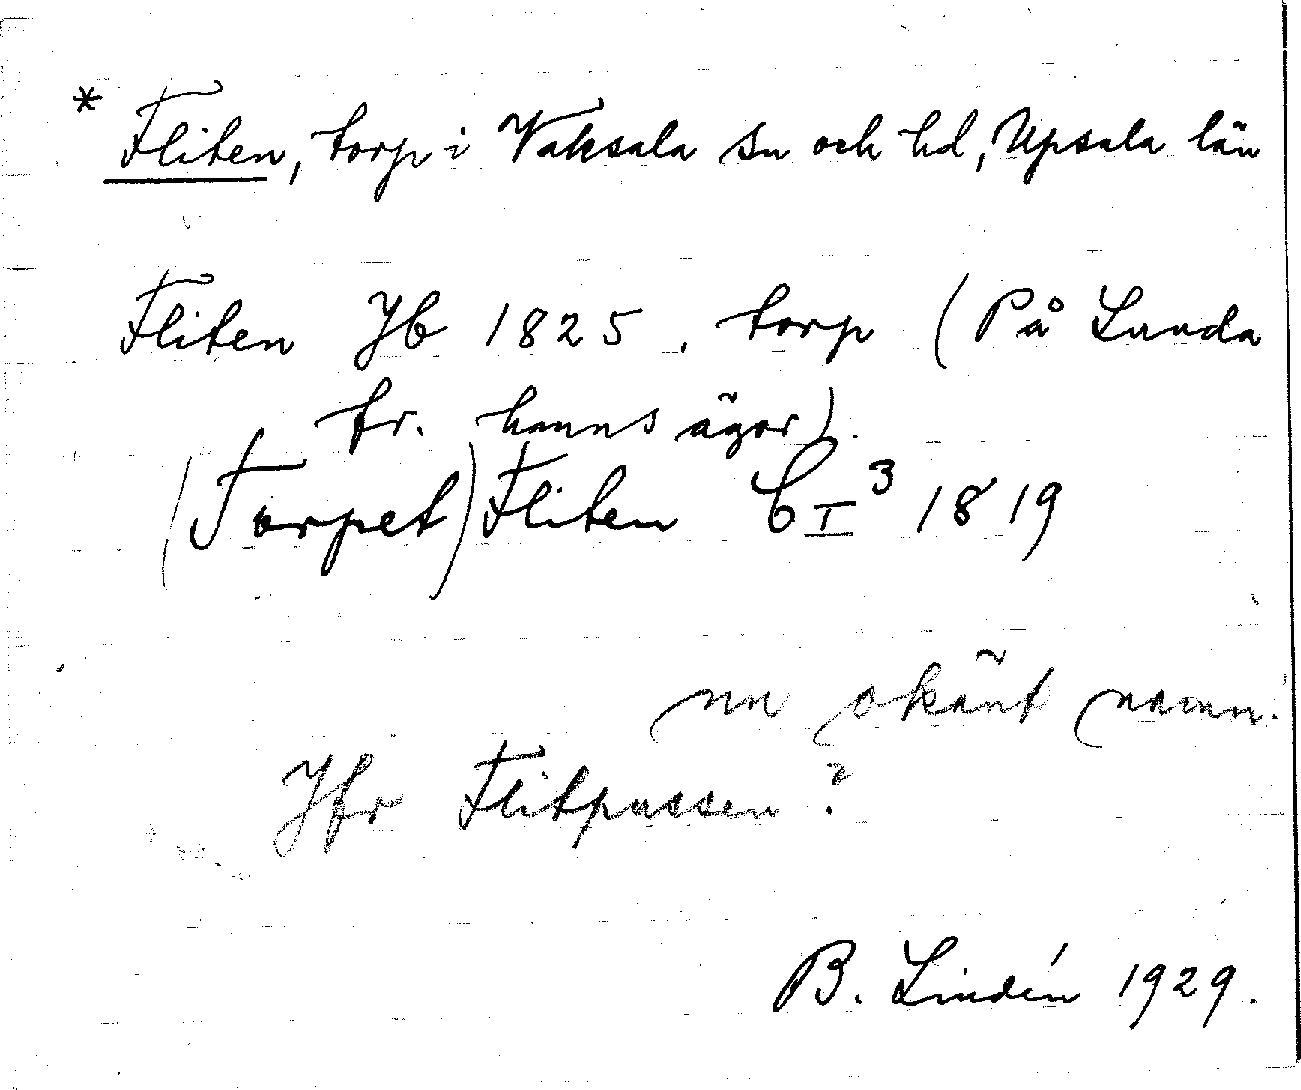 * Fliten, torp i Vaksala sn och hd, Upsala län
Fliten Jb 1825, torp (På Lunda
fr. hanns ägor).
(Torpet) Fliten CI³ 1819
nu okänt namn.
Jfr Flitpussen?
B. Lindén 1929.